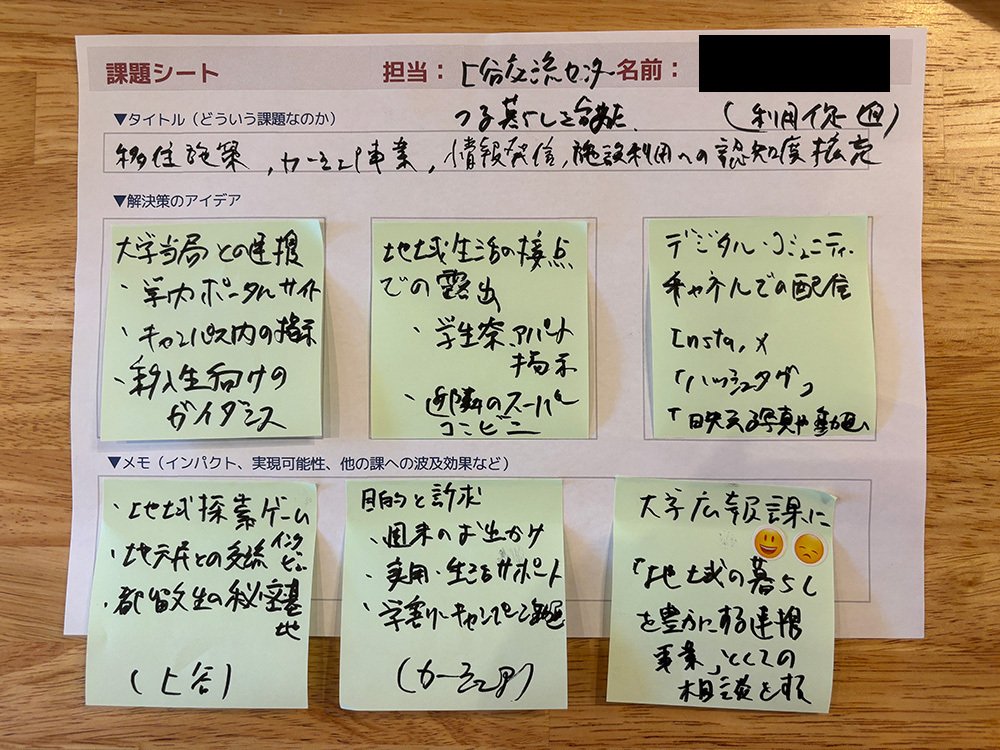 課題シート
担当：上谷交流センター 名前：
つる暮らしと合せた (利用促進)
▼タイトル（どういう課題なのか）
移住施策，カーシェア事業，情報発信，施設利用への認知度拡充
▼解決策のアイデア
大学当局との連携
・学内ポータルサイト
・キャンパス内の掲示
・新入生向けの
ガイダンス
地域生活の接点
での露出
・学生寮、アパート
掲示
・近隣のスーパー
コンビニ
デジタル・コミュニティ
チャネルでの配信
Insta, X
「ハッシュタグ」
「映える写真や動画」
▼メモ（インパクト、実現可能性、他の課への波及効果など）
・地域探索ゲーム
・地元民との交流 インタ
ビュー
・都留文生の秘密基
地
(上谷)
目的と訴求
・週末のお出かけ
・実用・生活サポート
・学割りキャンペーン
(カーシェア)
大学広報課に
「地域の暮らし
を豊かにする連携
事業」としての
相談をする